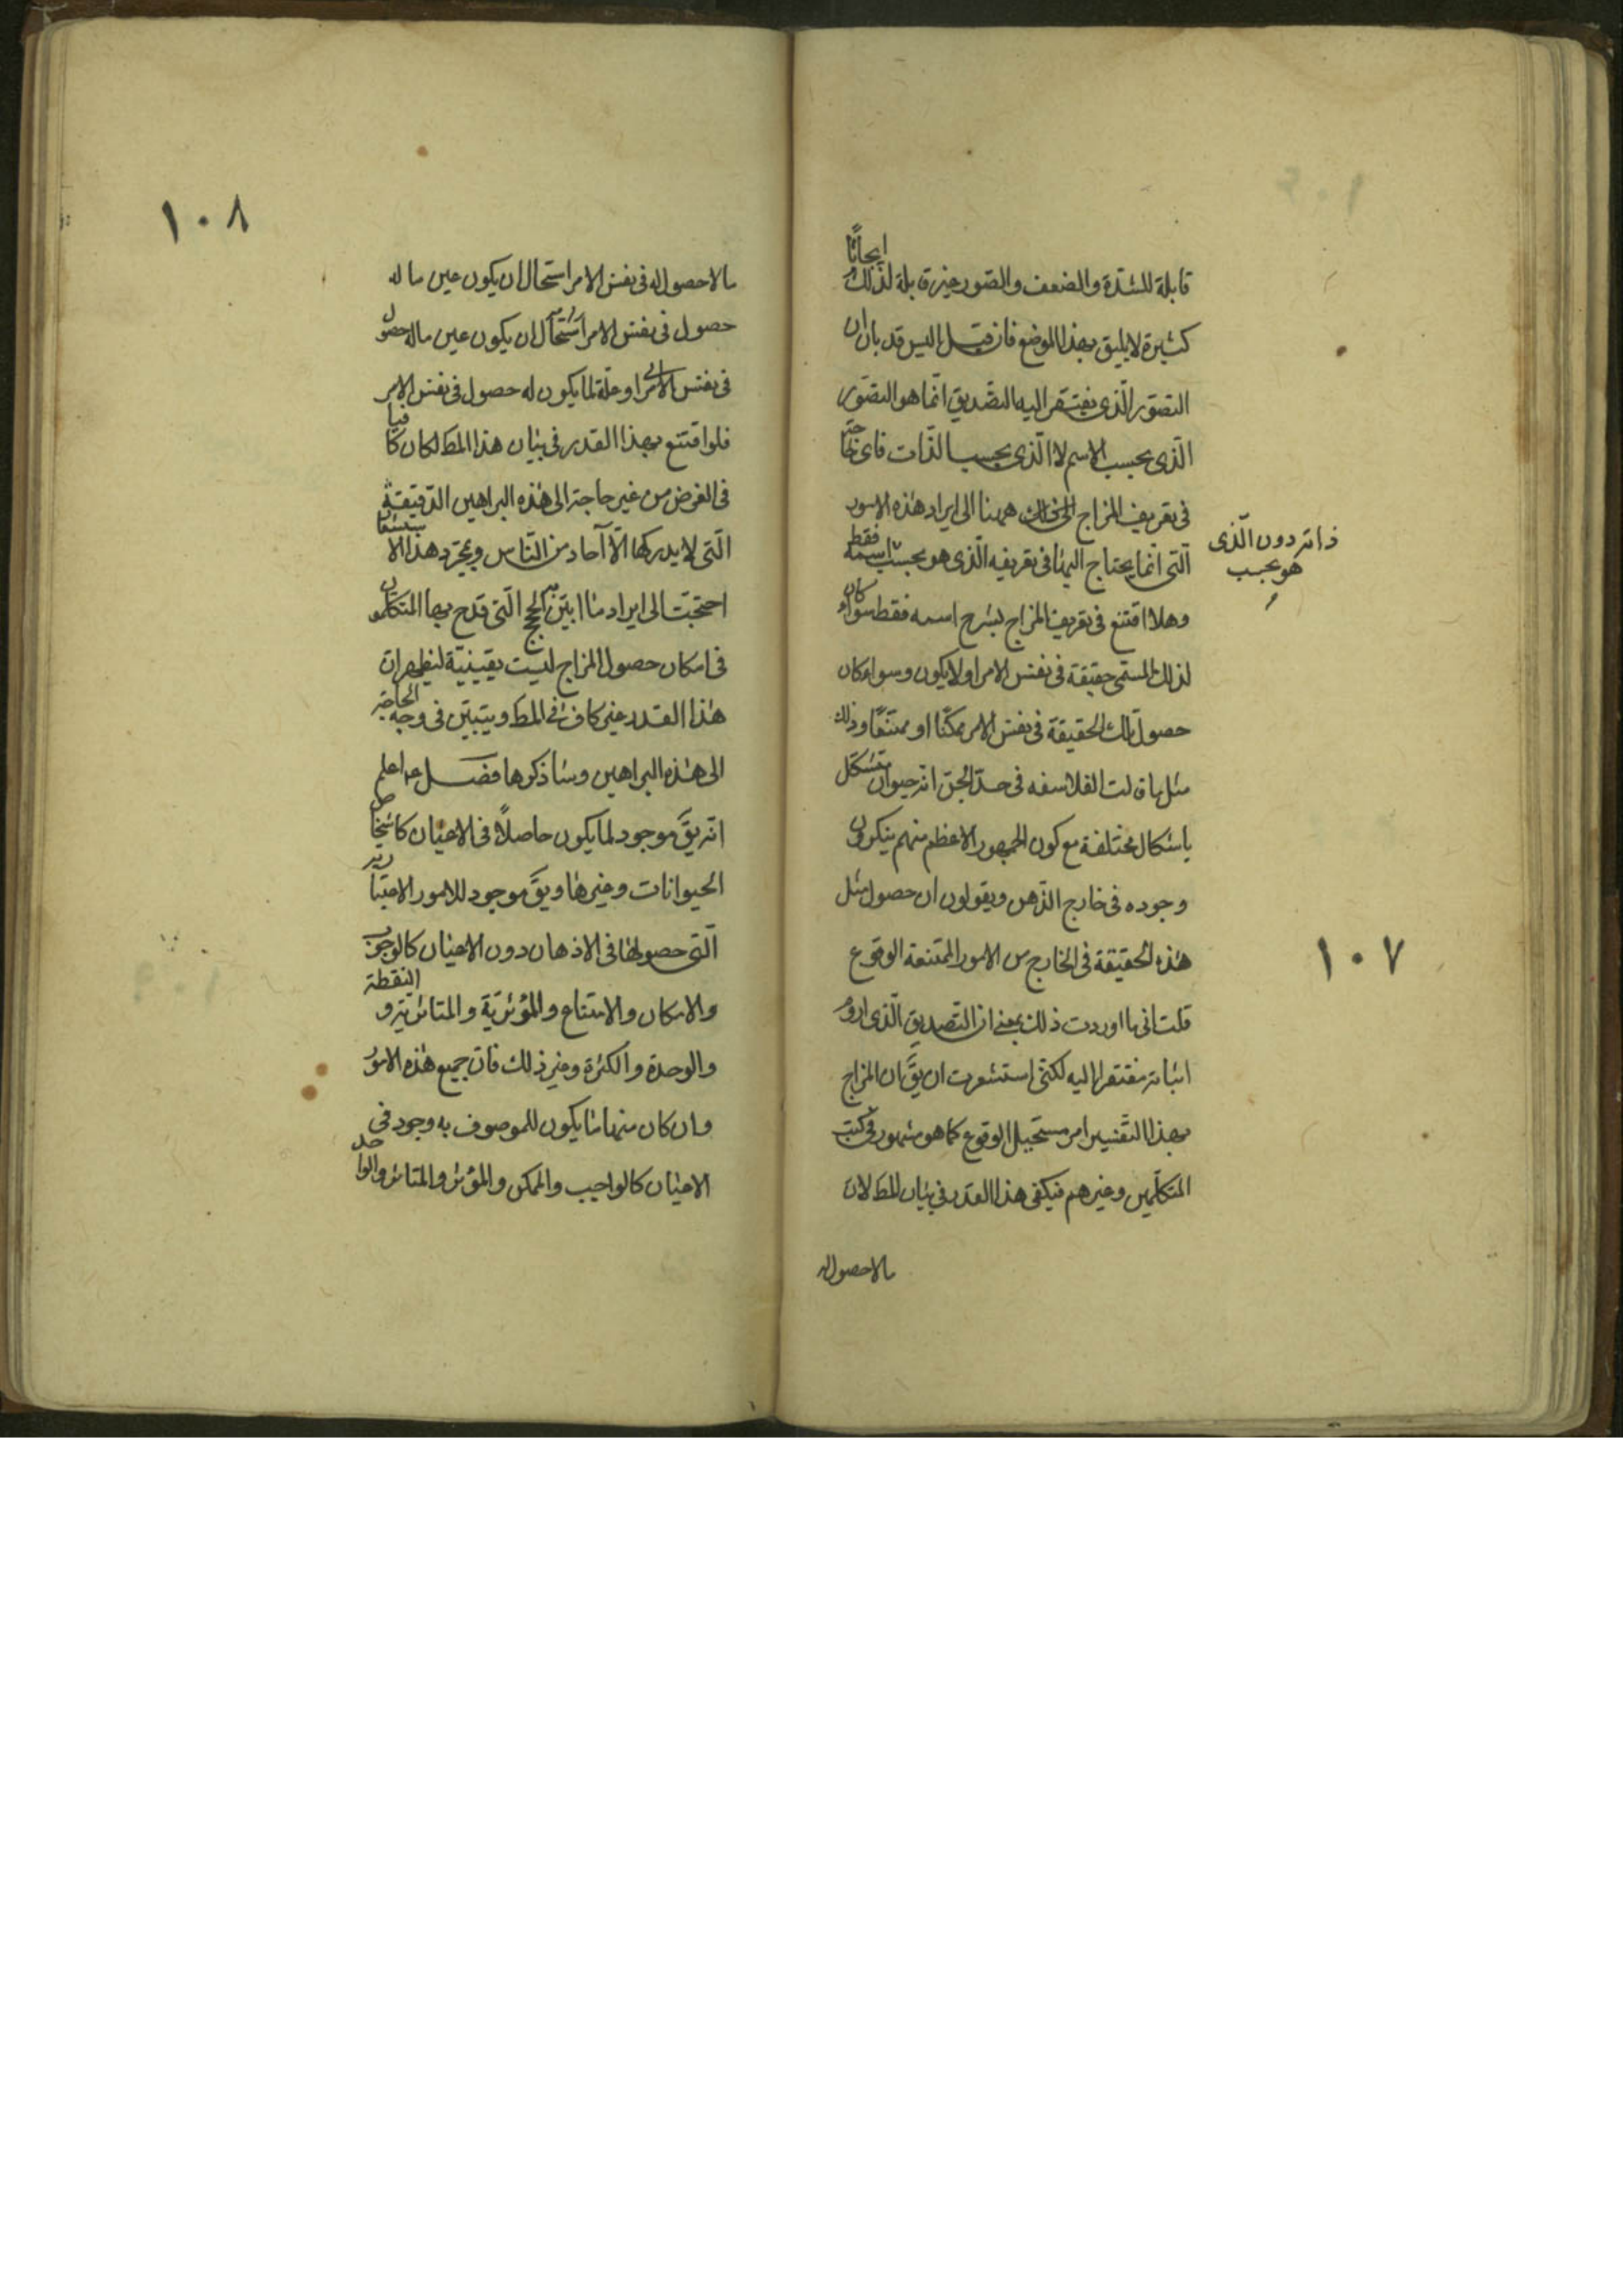 قابلة للشدّة والضعف والصّور غير قابلة لذلك ابحاثًا
كثيرة لا يليق بهذا الموضع فان قيل اليس قد بان ان
التصوّر الّذى يفتقر اليه التصّديق انّما هو التصّور
الّذى بحسب الاسم لا الّذى بحسب الذّات فاى حاجة
فى تعريف المزاج ههنا الى ايراد هذه الامور
الّتى انما يحتاج اليها فى تعريفه الّذى هو بحسب اسمه فقط
ذاته دون الّذى
هو بحسب
وهلا اقتنع فى تعريف المزاج بشرح اسمه فقط سواء كان
لذلك المسمّى حقيقة فى نفس الامر اولا يكون وسواء كان
حصول تلك الحقيقة فى نفس الامر ممكنًا او ممتنعًا وذلك
مثل ما قالت الفلاسفه فى حدّ الجنّ انه حيوان متشكّل
باشكال مختلفة مع كون الجمهور الاعظم منهم ينكرون
وجوده فى خارج الذّهن ويقولون ان حصول مثل
هذه الحقيقة فى الخارج من الامور الممتنعة الوقوع
١٠٧
قلت انى ما اوردت ذلك بمعنى ان التصديق الّذى اروم
اثباته مفتقرا اليه لكنّى استشعرت ان يقَ ان المزاج
بهذا التّفسير امر مستحيل الوقوع كما هو مشهور فى كتب
المتكلّمين وغيرهم فيكفى هذا القدر فى بيان المط لان
مالاحصول له
١٠٨
مالاحصول له فى نفس الامر استحال ان يكون عين ما له
حصول فى نفس الامر استحال ان يكون عين ماله حصول
فى نفس الامر او علّة لما يكون له حصول فى نفس الامر
فلو اقتنع بهذا القدر فى بيان هذا المط لكان كافيا
فى الغرض من غير حاجة الى هذه البراهين الدّقيقة
الّتى لا يدركها الّا آحاد من النّاس وبمجرّد هذا الاستشعار
احتجبت الى ايراد ما ابيّن الحجج الّتى قدح بها المتكلمون
فى امكان حصول المزاج ليست يقينيّة ليظهر ان
هذا القدر غير كاف فى المط ويتبيّن فى وجه الحاجة
الى هذه البراهين وساذكرها فصل اعلم
انّه يقَ موجود لما يكون حاصلاً فى الاعيان كاشخاص
الحيوانات وغيرها ويقَ موجود للامور الاعتبارية
الّتى حصولها فى الاذهان دون الاعيان كالوجوب
والامكان والامتناع والمؤثريّة والمتاثرية و النقطة
والوحدة والكثرة وغير ذلك فان جميع هذه الامور
وان كان منها ما يكون للموصوف به وجود فى
الاعيان كالواجب والممكن والمؤثر والمتاثر والواحد